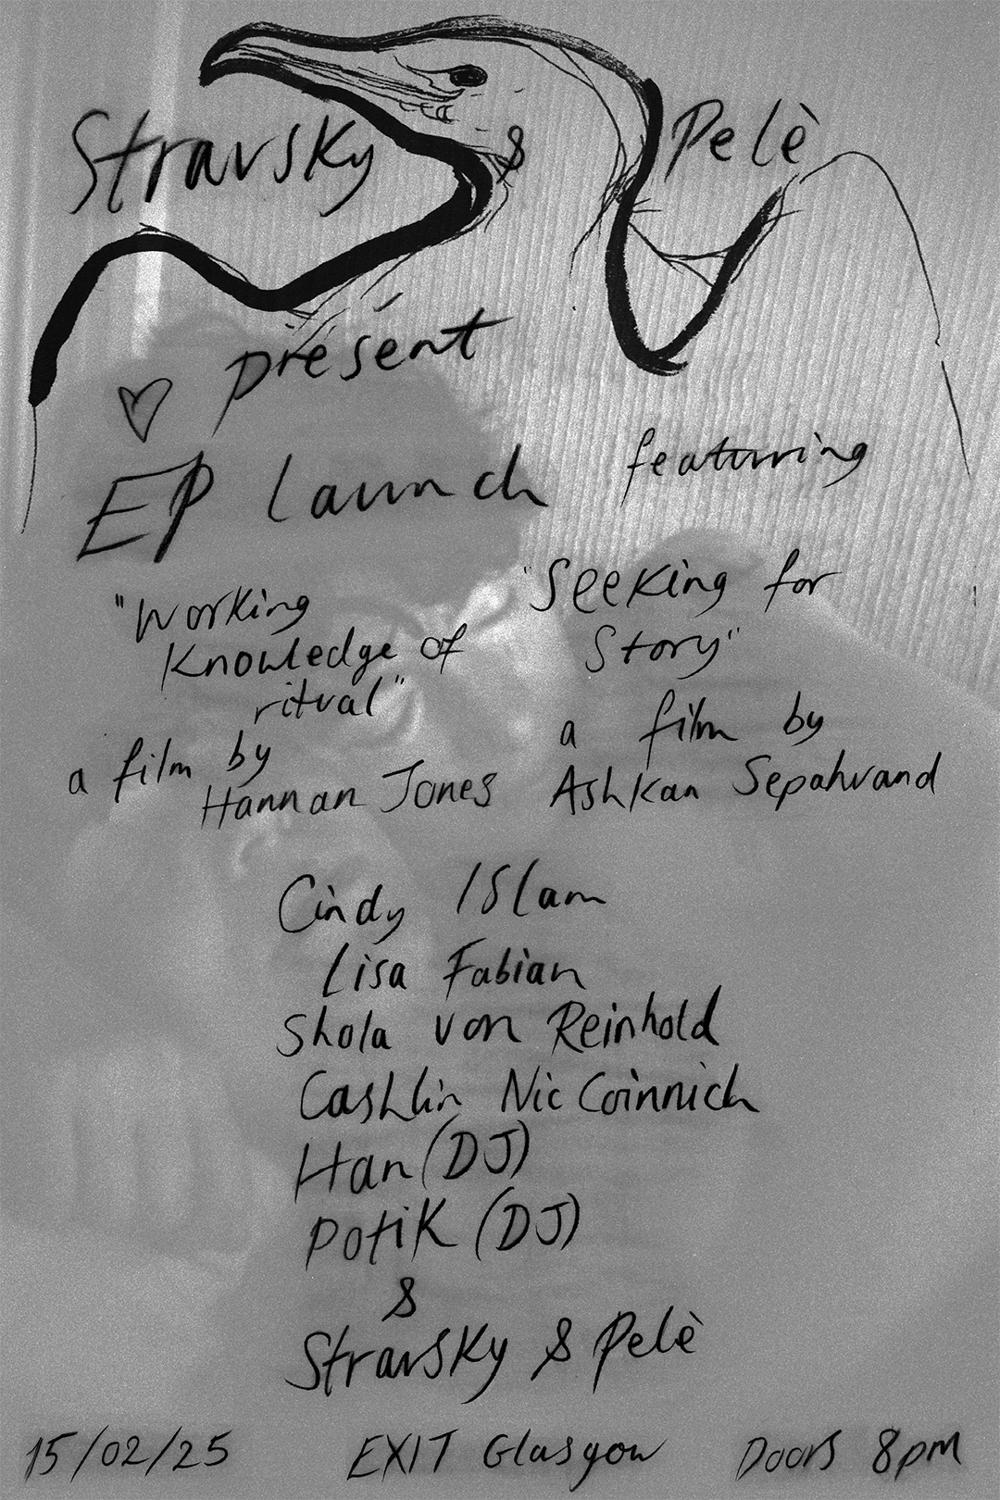 Stravsky & Pelè
present
EP Launch featuring
"Working
Knowledge of
ritual"
a film by
Hannan Jones
"Seeking for
Story"
a film by
Ashkan Sepahvand
Cindy ISlam
Lisa Fabian
Shola von Reinhold
Cashlin Nic Coinnich
Han (DJ)
Potik (DJ)
&
Stravsky & Pelè
15/02/25 EXIT Glasgow Doors 8pm